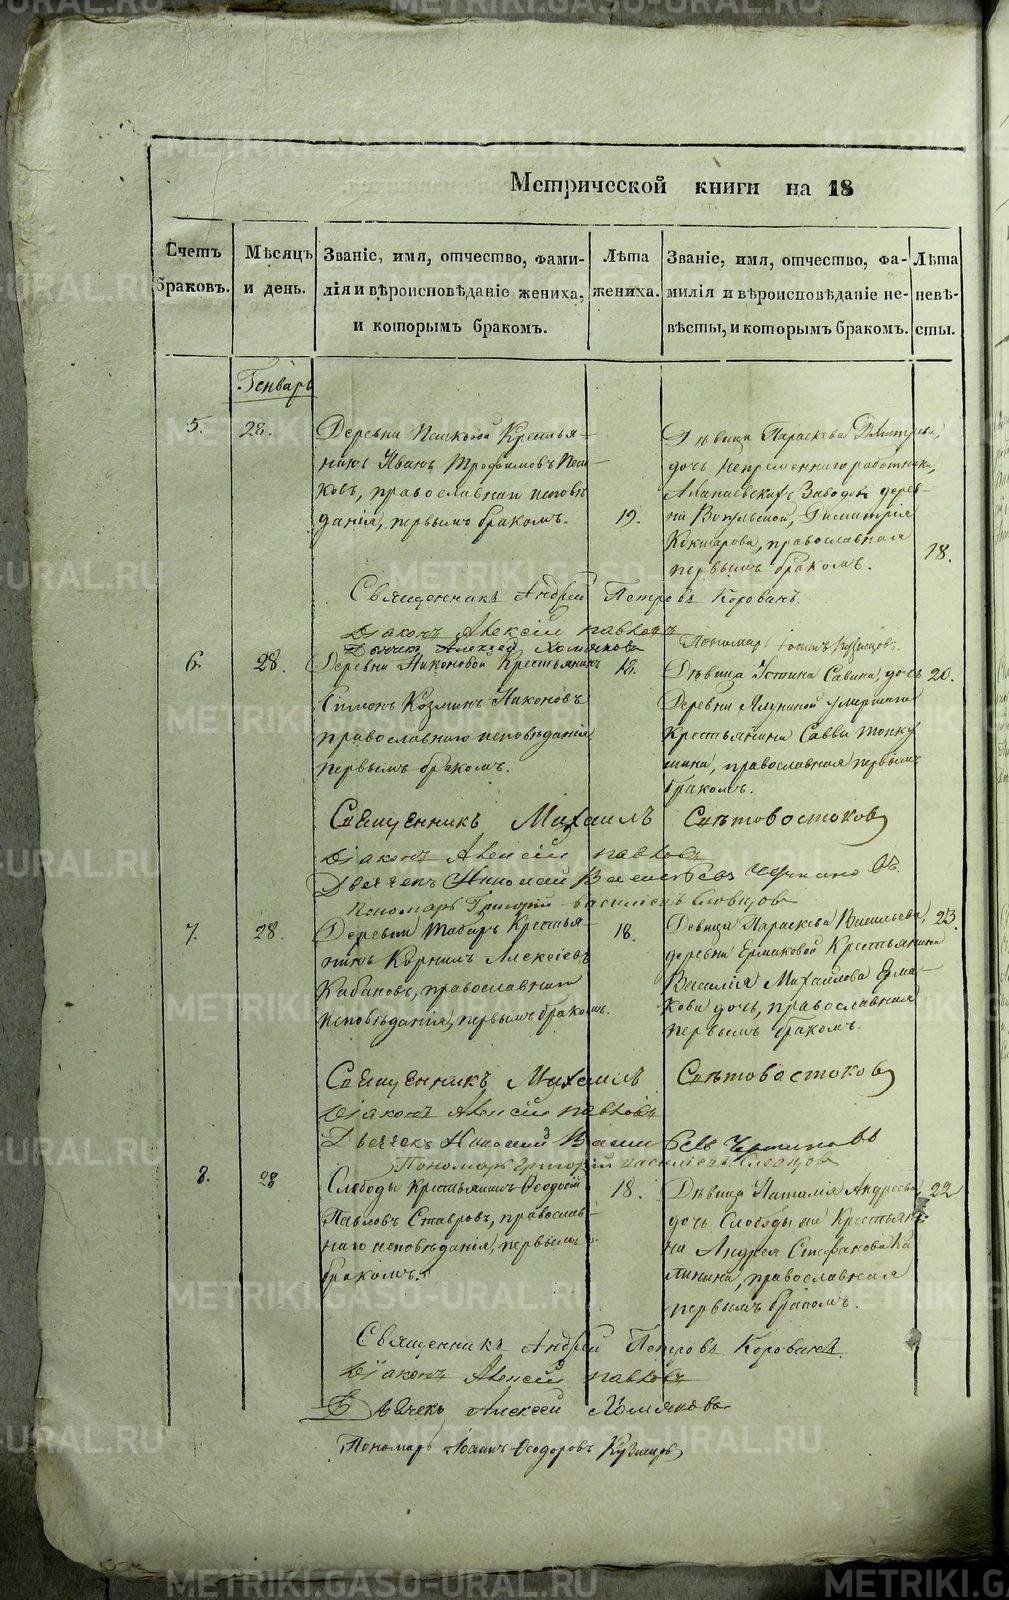 Метрической книги на 18
Счетъ браковъ.
Мѣсяцъ и день.
Званіе, имя, отчество, фами-
лія и вѣроисповѣданіе жениха,
и которымъ бракомъ.
Лѣта жениха.
Званіе, имя, отчество, фа-
милія и вѣроисповѣданіе не-
вѣсты, и которымъ бракомъ.
Лѣта невѣ-
сты.
Генварь
5. 28.
Деревни Крестья-
нинъ Иванъ Трофимовъ
ковъ, православнаго исповѣ
данія, первымъ бракомъ.
19.
Дѣвица Параскева Дмитріева,
дочь непременнаго работника,
Алапаевскихъ Заводовъ дерев-
ни Димитрія
Кокшарова, православная
первымъ бракомъ.
18.
Священникъ Андрей Петровъ Корованъ.
Діаконъ Алексій Павловъ
Дьячекъ Алексей Хомяковъ
Пономарь Іоаннъ Кузнецовъ.
6. 28.
Деревни Никоновой Крестьянинъ
Симонъ Козминъ Никоновъ
православнаго исповѣданія
первымъ бракомъ.
18.
Дѣвица Устина Савина, дочь
Деревни умершаго
Крестьянина Саввы
шина, православная первымъ
бракомъ.
20.
Священникъ Михаилъ Свѣтовостоковъ
Діаконъ Алексій Павловъ
Дьячекъ Николай Васильевъ
Пономарь Григорій Васильевъ Словцовъ
7. 28.
Деревни Табаръ Крестья-
нинъ Корнилъ Алексіевъ
Кабановъ, православнаго
исповѣданія, первымъ бракомъ.
18.
Девица Параскева Васильева,
деревни Ермаковой Крестьянина
Василія Михаилова Ерма-
кова дочь, православная
первымъ бракомъ.
23.
Священникъ Михаилъ Свѣтовостоковъ
Діаконъ Алексій Павловъ
Дьячекъ Николай Васильевъ
Пономарь Григорій Васильевъ Словцовъ
8. 28
Слободы Крестьянинъ Ѳеодосій
Павловъ Ставровъ, православ-
наго исповѣданія, первымъ
бракомъ.
18.
Дѣвица Наталія Андреева
дочь Слободы же Крестьяни-
на Андрея Стефанова Ка
линина, православная
первымъ бракомъ.
22
Священникъ Андрей Петровъ Корованъ.
Діаконъ Алексій Павловъ
Дьячекъ Алексей Хомяковъ
Пономарь Іоаннъ Ѳеодоровъ Кузнецовъ
METRIKI.GASO-URAL.RU